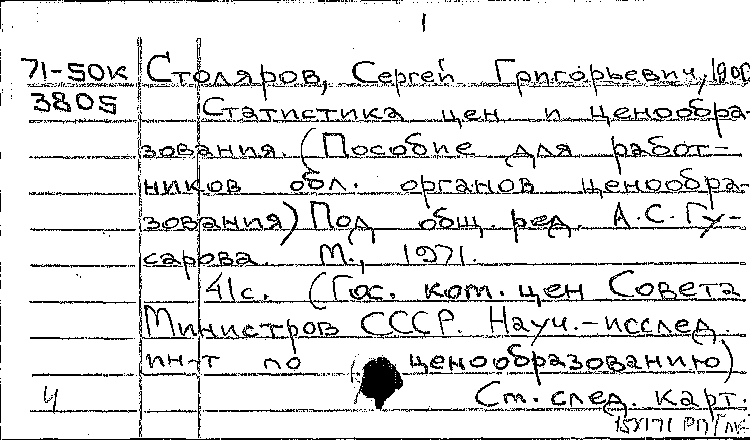 1
71-50к Столяров, Сергей Григорьевич,
3805 Статистика цен и ценообра-
зования. (Пособие для работ-
ников обл. органов ценообра-
зования) Под общ. ред. А.С. Гу-
сарова. М., 1971.
41с. (Гос. ком. цен Совета
Министров СССР. Науч.-исслед.
ин-т по ценообразованию)
4 Ст. след. карт.